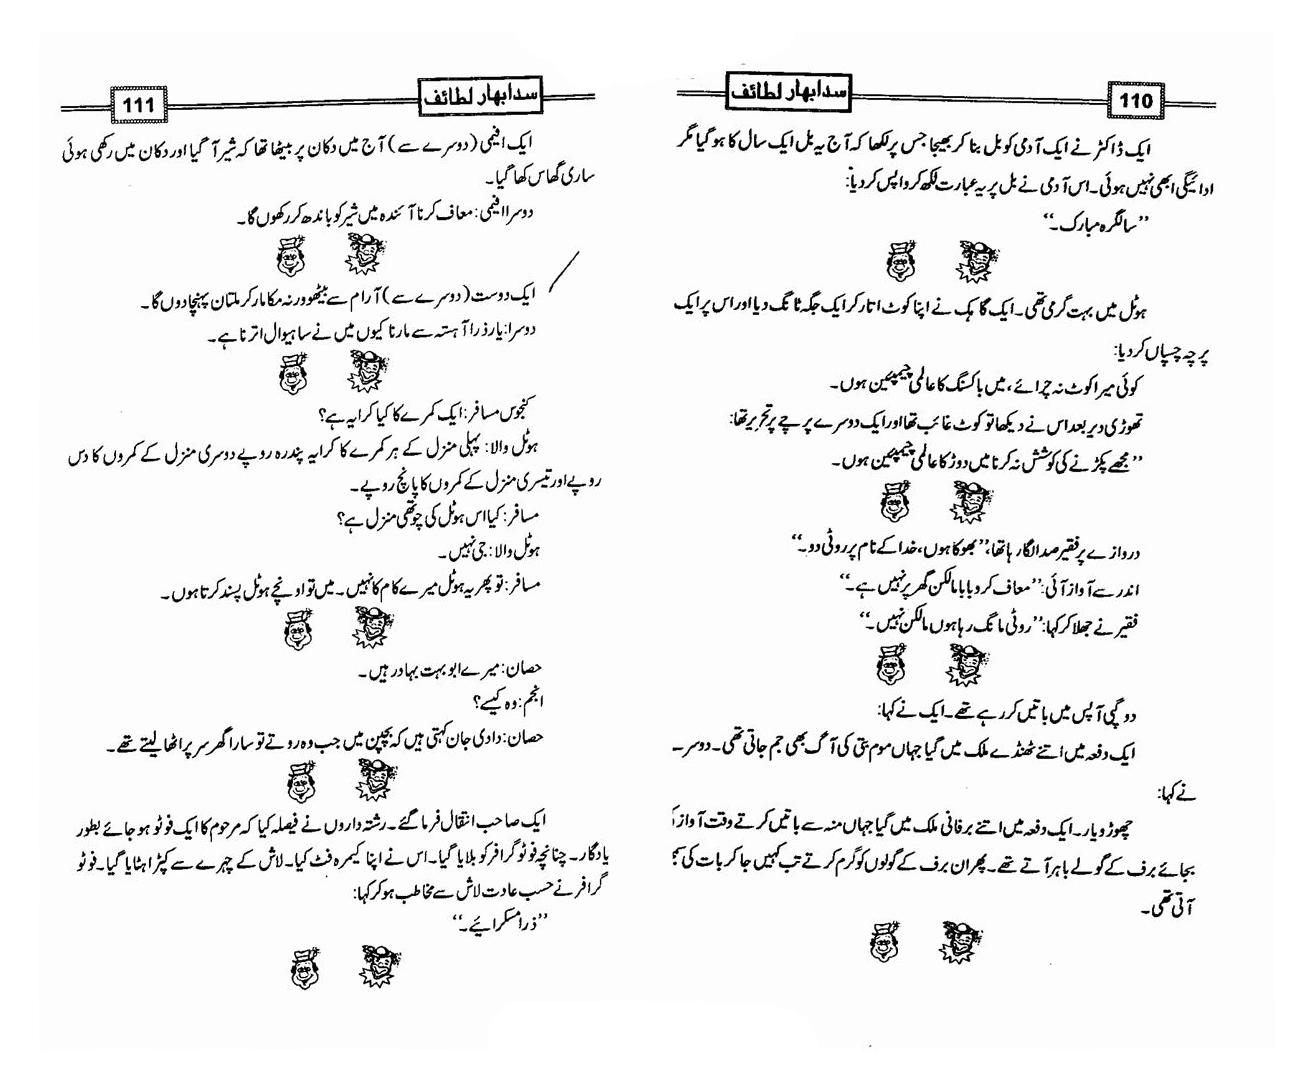 سدابهار لطائف
110
ایک ڈاکٹر نے ایک آدمی کو بل بنا کر بھیجا جس پر لکھا کہ آج یہ بل ایک سال کا ہو گیا مگر
ادائیگی ابھی نہیں ہوئی۔ اس آدمی نے بل پر یہ عبارت لکھ کر واپس کر دیا:
’’سالگرہ مبارک۔‘‘
ہوٹل میں بہت گرمی تھی۔ ایک گاہک نے اپنا کوٹ اتار کر ایک جگہ ٹانگ دیا اور اس پر ایک
پرچہ چسپاں کر دیا:
کوئی میرا کوٹ نہ چرائے، میں باکسنگ کا عالمی چیمپئین ہوں۔
تھوڑی دیر بعد اس نے دیکھا تو کوٹ غائب تھا اور ایک دوسرے پرچے پر تحریر تھا:
’’مجھے پکڑنے کی کوشش نہ کرنا میں دوڑ کا عالمی چیمپئین ہوں۔
دروازے پر فقیر صدا لگا رہا تھا، ’’بھوکا ہوں، خدا کے نام پر روٹی دو۔‘‘
اندر سے آواز آئی: ’’معاف کرو بابا مالکن گھر پر نہیں ہے۔‘‘
فقیر نے جھلا کر کہا: ’’روٹی مانگ رہا ہوں مالکن نہیں۔‘‘
دو گپی آپس میں باتیں کر رہے تھے۔ ایک نے کہا:
ایک دفعہ میں اتنے ٹھنڈے ملک میں گیا جہاں موم بتی کی آگ بھی جم جاتی تھی۔ دوسر
نے کہا:
چھوڑو یار۔ ایک دفعہ میں اتنے برفانی ملک میں گیا جہاں منہ سے باتیں کرتے وقت آواز
بجائے برف کے گولے باہر آتے تھے۔ پھر ان برف کے گولوں کو گرم کرتے تب کہیں جا کر بات کی
آتی تھی۔
سدابهار لطائف
111
ایک افیمی (دوسرے سے) آج میں دکان پر بیٹھا تھا کہ شیر آ گیا اور دکان میں رکھی ہوئی
ساری گھاس کھا گیا۔
دوسرا افیمی: معاف کرنا آئندہ میں شیر کو باندھ کر رکھوں گا۔
ایک دوست (دوسرے سے) آرام سے بیٹھو ورنہ مکا مار کر ملتان پہنچا دوں گا۔
دوسرا: یار ذرا آہستہ سے مارنا کیوں میں نے ساہیوال اترنا ہے۔
کنجوس مسافر: ایک کمرے کا کیا کرایہ ہے؟
ہوٹل والا: پہلی منزل کے ہر کمرے کا کرایہ پندرہ روپے دوسری منزل کے کمروں کا دس
روپے اور تیسری منزل کے کمروں کا پانچ روپے۔
مسافر: کیا اس ہوٹل کی چوتھی منزل ہے؟
ہوٹل والا: جی نہیں۔
مسافر: تو پھر یہ ہوٹل میرے کام کا نہیں۔ میں تو اونچے ہوٹل پسند کرتا ہوں۔
حصان: میرے ابو بہت بہادر ہیں۔
انجم: وہ کیسے؟
حصان: دادی جان کہتی ہیں کہ بچپن میں جب وہ روتے تو سارا گھر سر پر اٹھا لیتے تھے۔
ایک صاحب انتقال فرما گئے۔ رشتہ داروں نے فیصلہ کیا کہ مرحوم کا ایک فوٹو ہو جائے بطور
یادگار۔ چنانچہ فوٹو گرافر کو بلایا گیا۔ اس نے اپنا کیمرہ فٹ کیا۔ لاش کے چہرے سے کپڑا ہٹایا گیا۔ فوٹو
گرافر نے حسب عادت لاش سے مخاطب ہو کر کہا:
’’ذرا مسکرائیے۔‘‘